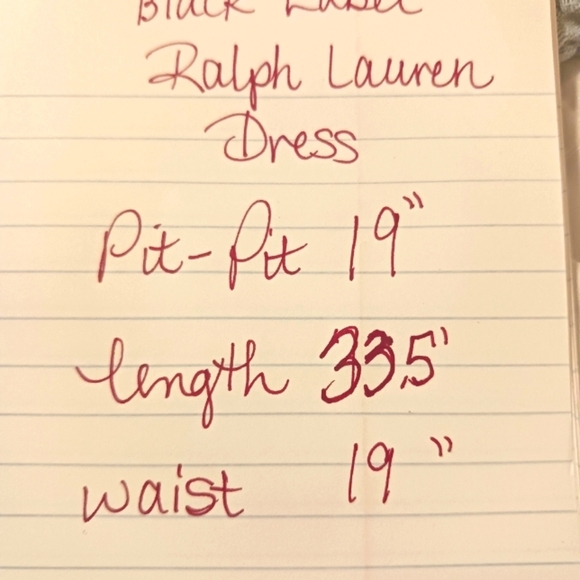 Black Label
Ralph Lauren
Dress
Pit-Pit 19"
length 33.5'
waist 19 "